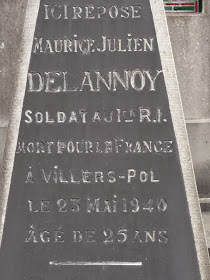 ICI REPOSE
MAURICE JULIEN
DELANNOY
SOLDAT AU R.I.
MORT POUR LA FRANCE
À VILLERS-POL
LE 23 MAI 1940
ÂGÉ DE 25 ANS